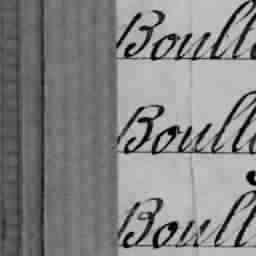 Boull
Boull
Boull